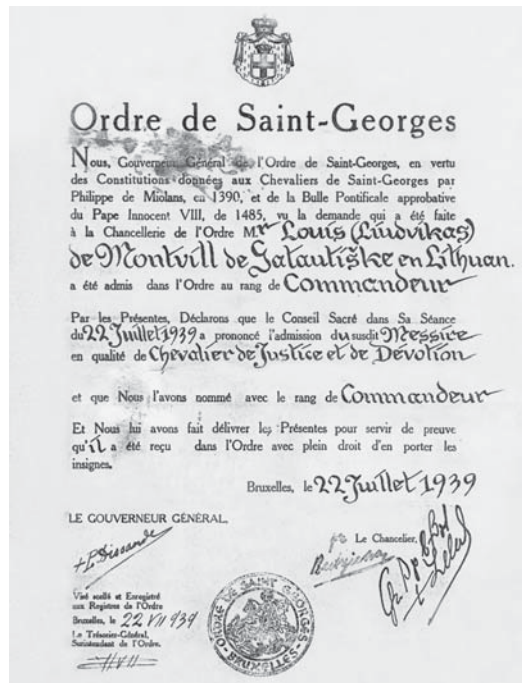 Ordre de Saint-Georges
Nous, Gouverneur Général de l'Ordre de Saint-Georges, en vertu
des Constitutions données aux Chevaliers de Saint-Georges par
Philippe de Miolans, en 1390, et de la Bulle Pontificale approbative
du Pape Innocent VIII, de 1485, vu la demande qui a été faite
à la Chancellerie de l'Ordre M.r Louis (Liudvikas)
de Montvill de Satautiške en Lithuan.
a été admis dans l'Ordre au rang de Commandeur
Par les Présentes, Déclarons que le Conseil Sacré dans Sa Séance
du 22 Juillet 1939 a prononcé l'admission du susdit Messire
en qualité de Chevalier de Justice et de Dévotion
et que Nous l'avons nommé avec le rang de Commandeur
Et Nous lui avons fait délivrer les Présentes pour servir de preuve
qu'il a été reçu dans l'Ordre avec plein droit d'en porter les
insignes.
Bruxelles, le 22 Juillet 1939
LE GOUVERNEUR GÉNÉRAL,
Le Chancelier,
Visé scellé et Enregistré
aux Registres de l'Ordre
Bruxelles, le 22 VII 939
Le Trésorier-Général,
Surintendant de l'Ordre.
ORDRE DE SAINT GEORGES
BRUXELLES